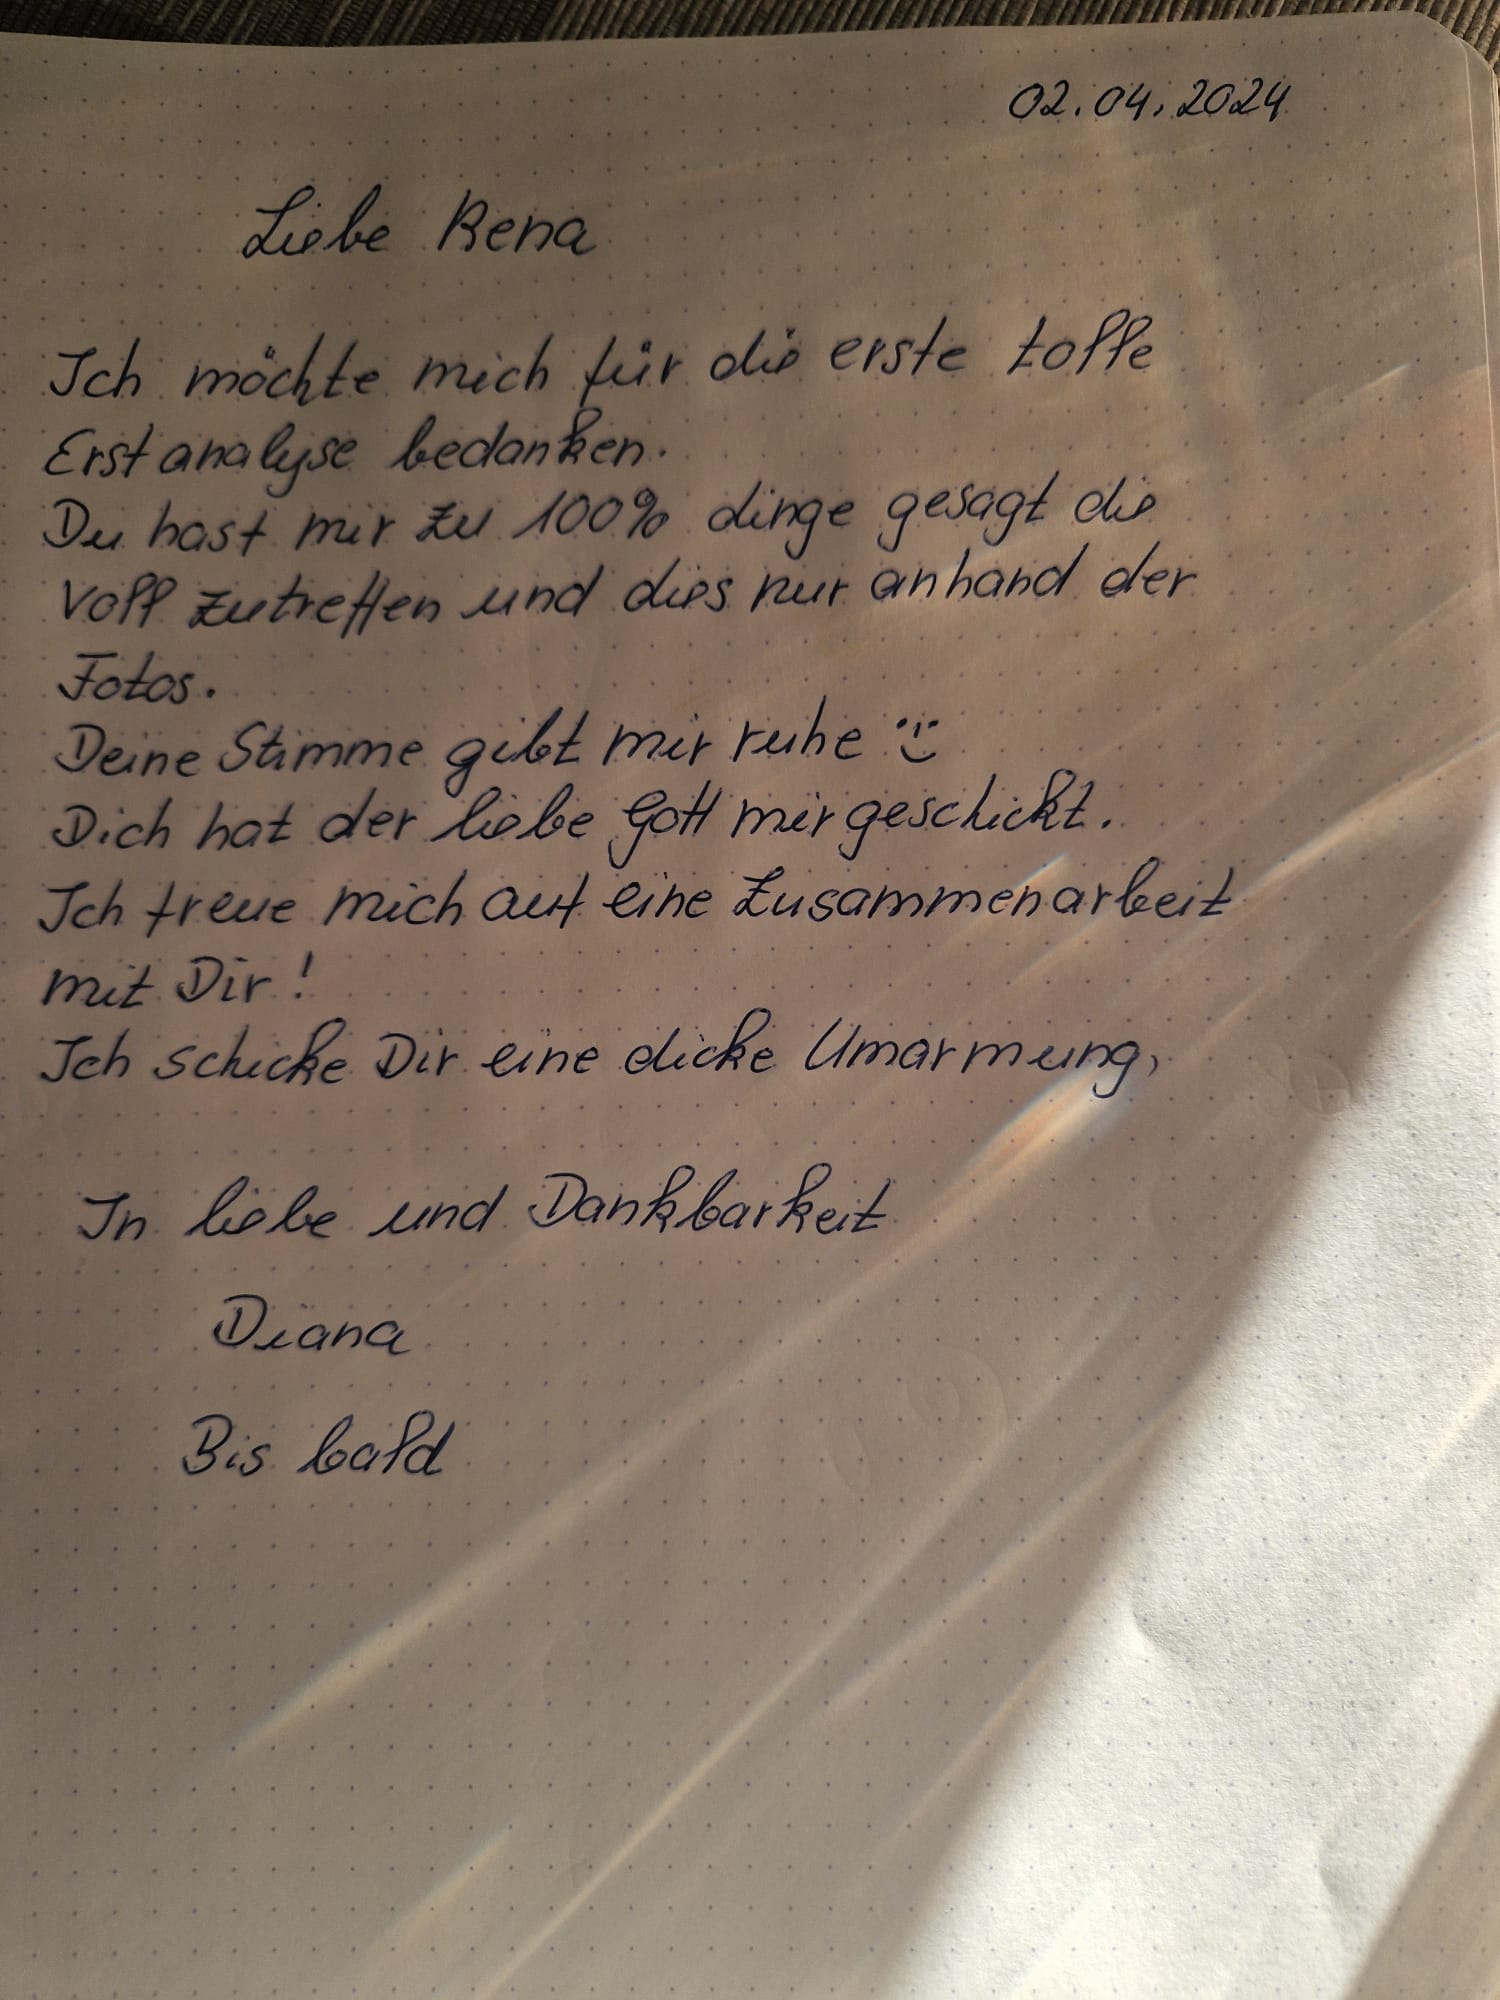 02.04.2024
Liebe Rena
Ich möchte mich für die erste tolle
Erstanalyse bedanken.
Du hast mir zu 100% dinge gesagt die
voll zutreffen und dies nur anhand der
Fotos.
Deine Stimme gibt mir ruhe :-)
Dich hat der liebe Gott mir geschickt.
Ich freue mich auf eine Zusammenarbeit
mit Dir!
Ich schicke Dir eine dicke Umarmung,
In liebe und Dankbarkeit
Diana
Bis bald